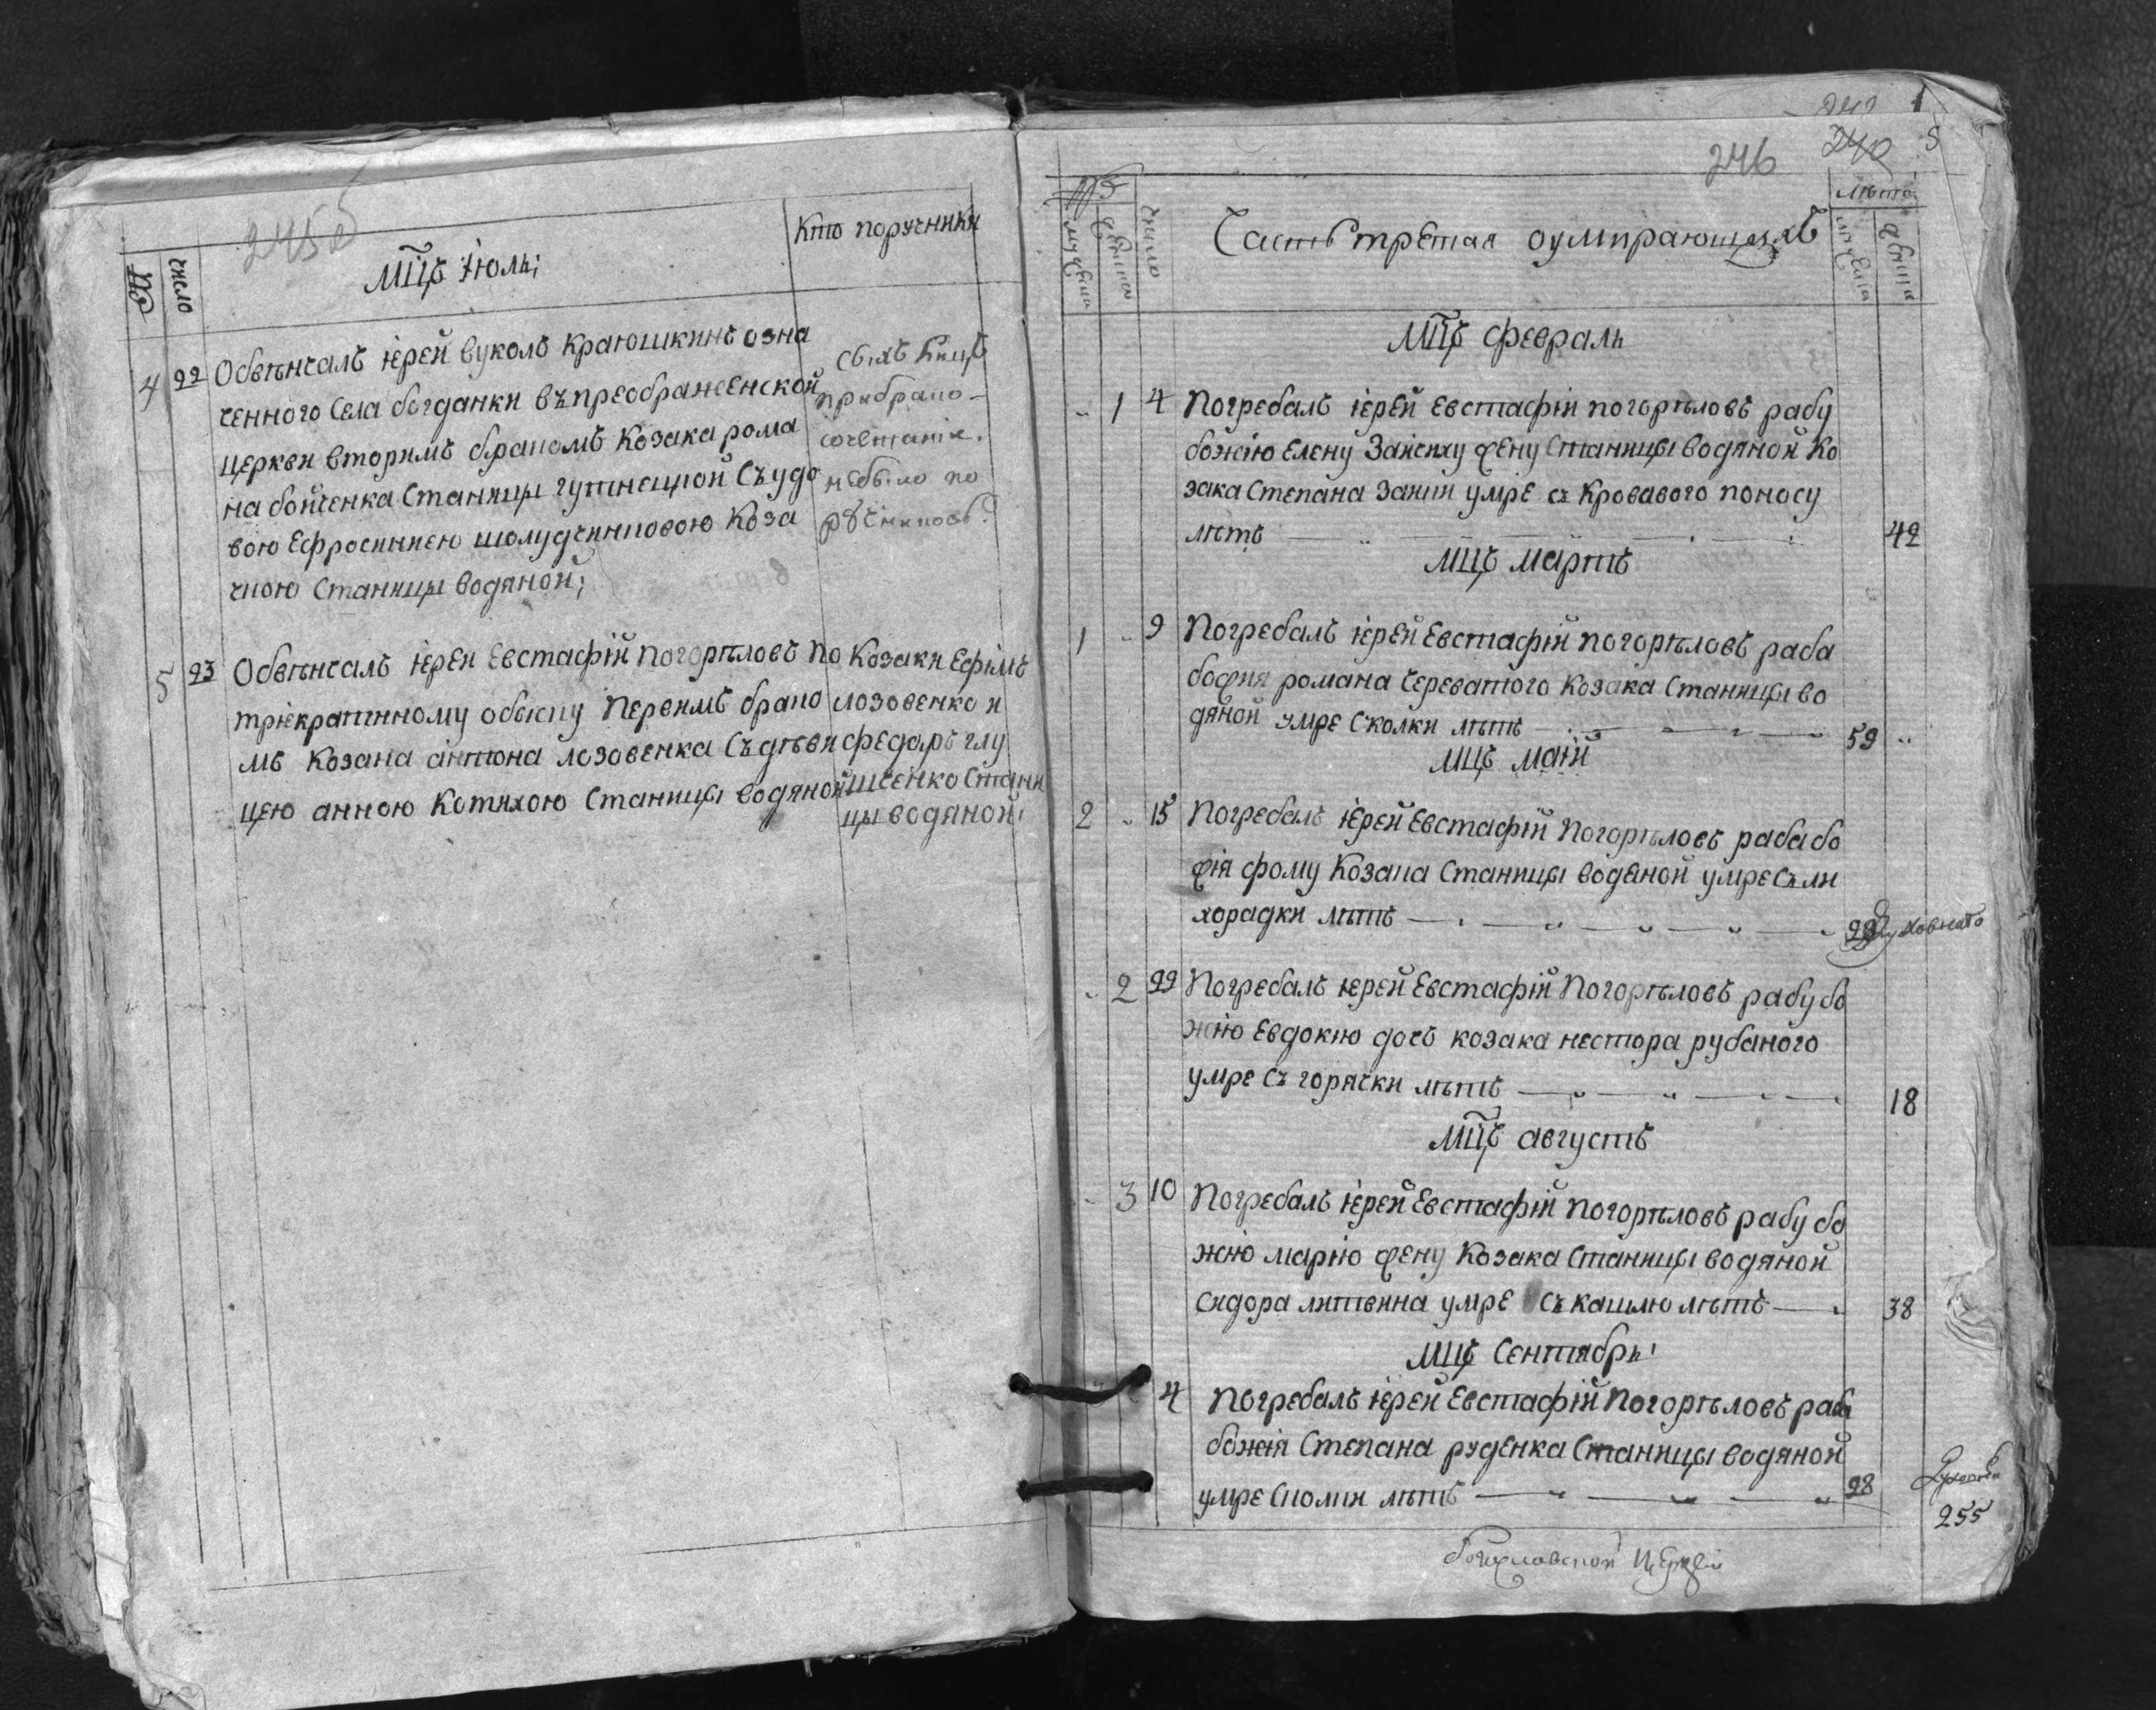 245об
Мц҃ъ іюль;
Кто поручники
число
4 22 Обвѣнчалъ іерей Вуколъ Краюшкинъ озна
ченного Села богданки въ преображенской
церкви вторимъ бракомъ Козака рома
на бойченка Станицы гутнецкой Съ удо
вою Ефросиниею Коза
чкою Станицы водяной;
Сихъ
при брако-
сочетанія.
небыло по
ручниковъ.
5 23 Обвѣнчалъ іерей Евстафій Погорѣловъ по
тріекратнному обыску Первимъ брако
мъ Козака антона лозовенка Съ дѣви
цею анною Котяхою Станицы водяной
Козаки Ефімъ
лозовенко и
федоръ глу
щенко Стани
цы водяной
240
246
число
лѣта
Часть третая оумирающихъ
Мц҃ъ февраль
1 4 Погребалъ іерей Евстафій погорѣловъ рабу
божію Елену Заикиху жену Станицы водяной Ко
зака Степана Заики умре съ Кровавого поносу
лѣтъ 42
мцъ мартъ
1 9 Погребалъ іерей Евстафій погорѣловъ раба
божия романа Череватого Козака Станицы во
дяной умре Сколки лѣтъ 59
мцъ маій
2 15 Погребалъ іерей Евстафій Погорѣловъ раба бо
жія фому Козака Станицы водяной умре Съ ли
хорадки лѣтъ 29
2 22 Погребалъ іерей Евстафій Погорѣловъ рабу бо
жію Евдокию дочь козака нестора рубаного
умре Съ горячки лѣтъ 18
Мц҃ъ августъ
3 10 Погребалъ іерей Евстафій Погорѣловъ рабу бо
жію марію жену Козака Станицы водяной
Сидора литвина умре Съ кашлю лѣтъ 38
мцъ Сентябрь
4 Погребалъ іерей Евстафій Погорѣловъ раба
божія Степана руденка Станицы водяной
умре Сколки лѣтъ 28
255
Церкви